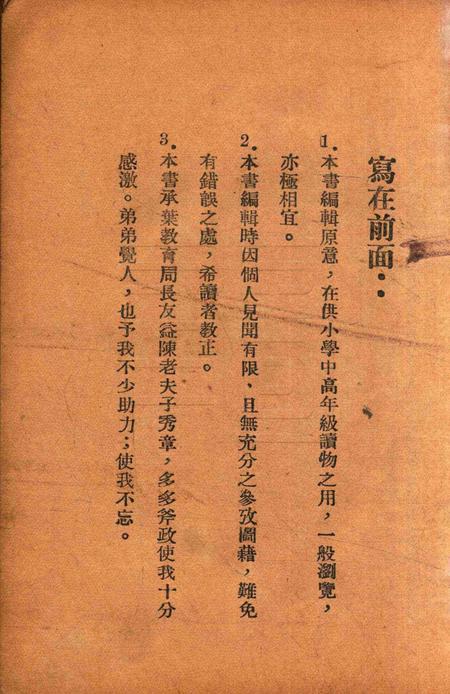 寫在前面：
1.本書編輯原意，在供小學中高年級讀物之用，一般瀏覽，
亦極相宜。
2.本書編輯時因個人見聞有限、且無充分之參攷圖藉，難免
有錯誤之處，希讀者教正。
3.本書承葉教育局長友益陳老夫子秀章，多多斧政使我十分
感激。弟弟覺人，也予我不少助力；使我不忘。